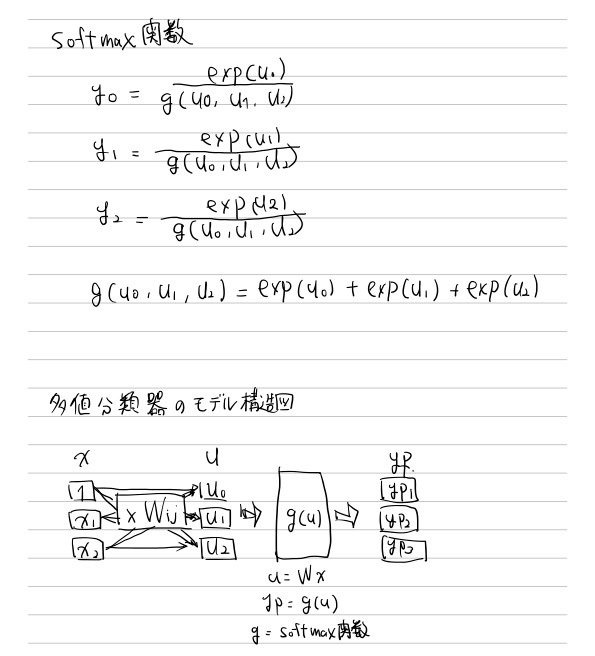 softmax関数
y0 = exp(u0) / g(u0, u1, u2)
y1 = exp(u1) / g(u0, u1, u2)
y2 = exp(u2) / g(u0, u1, u2)
g(u0, u1, u2) = exp(u0) + exp(u1) + exp(u2)
多値分類器のモデル構造図
x u yp
1 u0 yp1
x1 x Wij u1 g(u) yp2
x2 u2 yp3
u = Wx
yp = g(u)
g = softmax関数